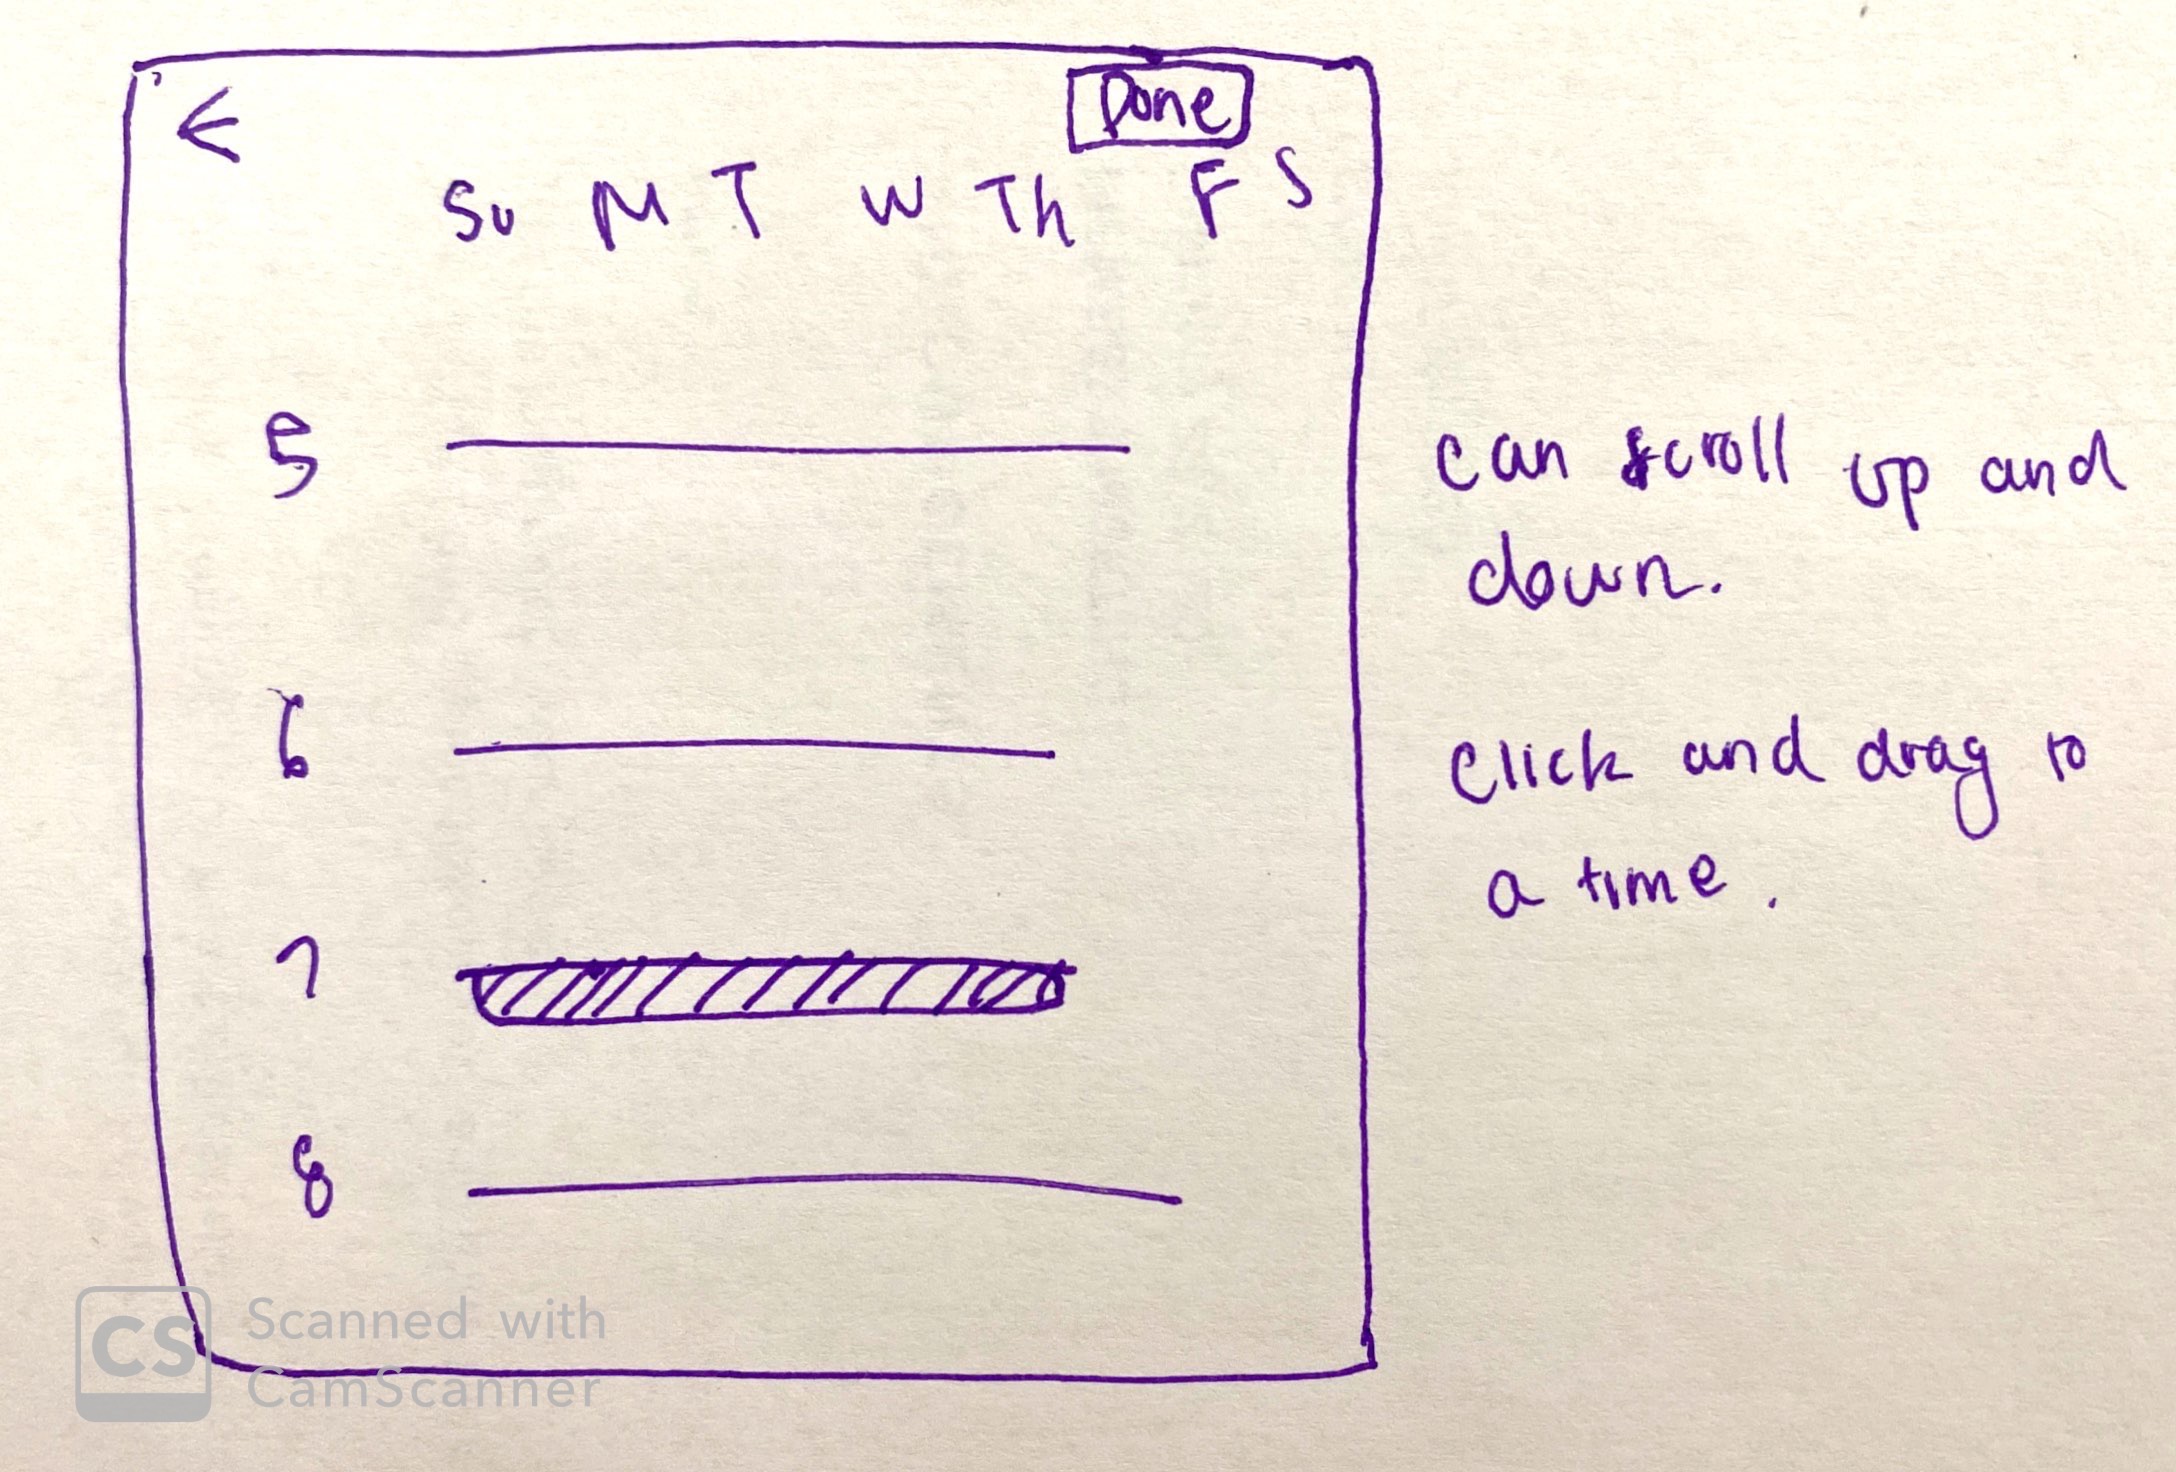 ←
Done
Su M T W Th F S
5
can scroll up and
down.
6
click and drag to
a time.
7
8
CS Scanned with
CamScanner